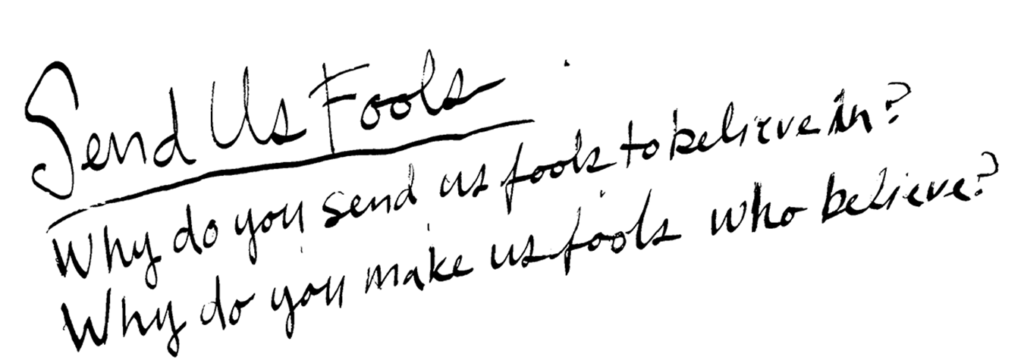 Send Us Fools
Why do you send us fools to believe in?
Why do you make us fools who believe?